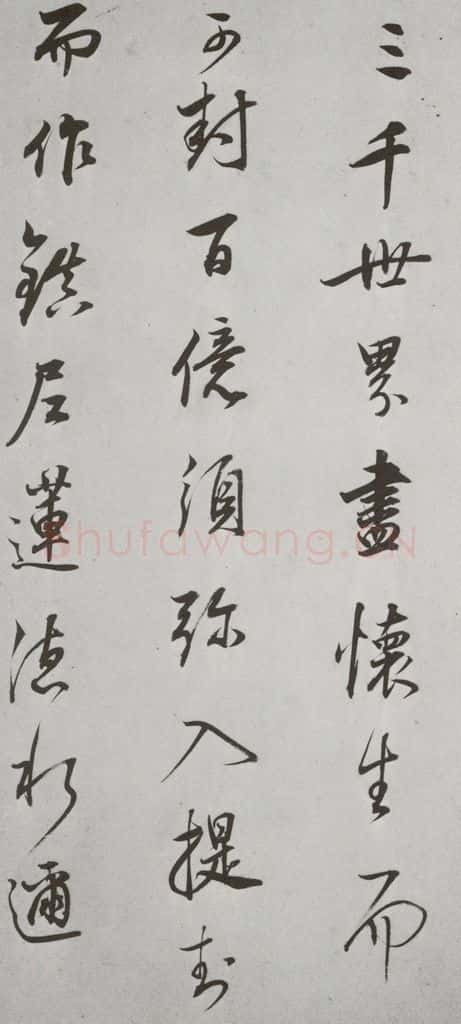 三千世界盡懷生而
可封百億須弥入提封
而作鎮尼蓮德水邇
Shufawang.CN